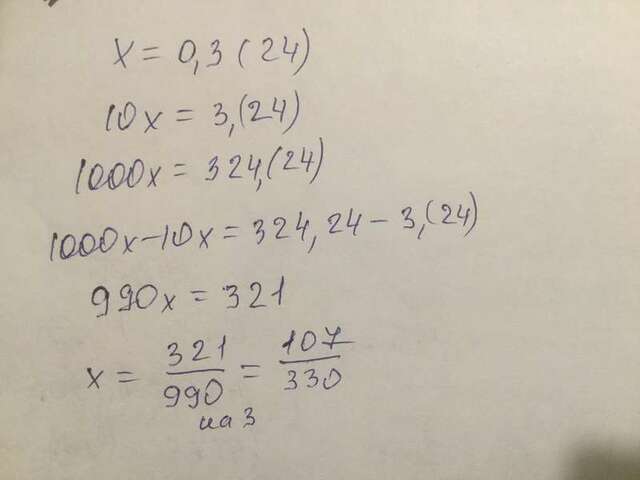 x = 0,3(24)
10x = 3,(24)
1000x = 324,(24)
1000x-10x = 324,24-3,(24)
990x = 321
x = 321/990 = 107/330
на 3